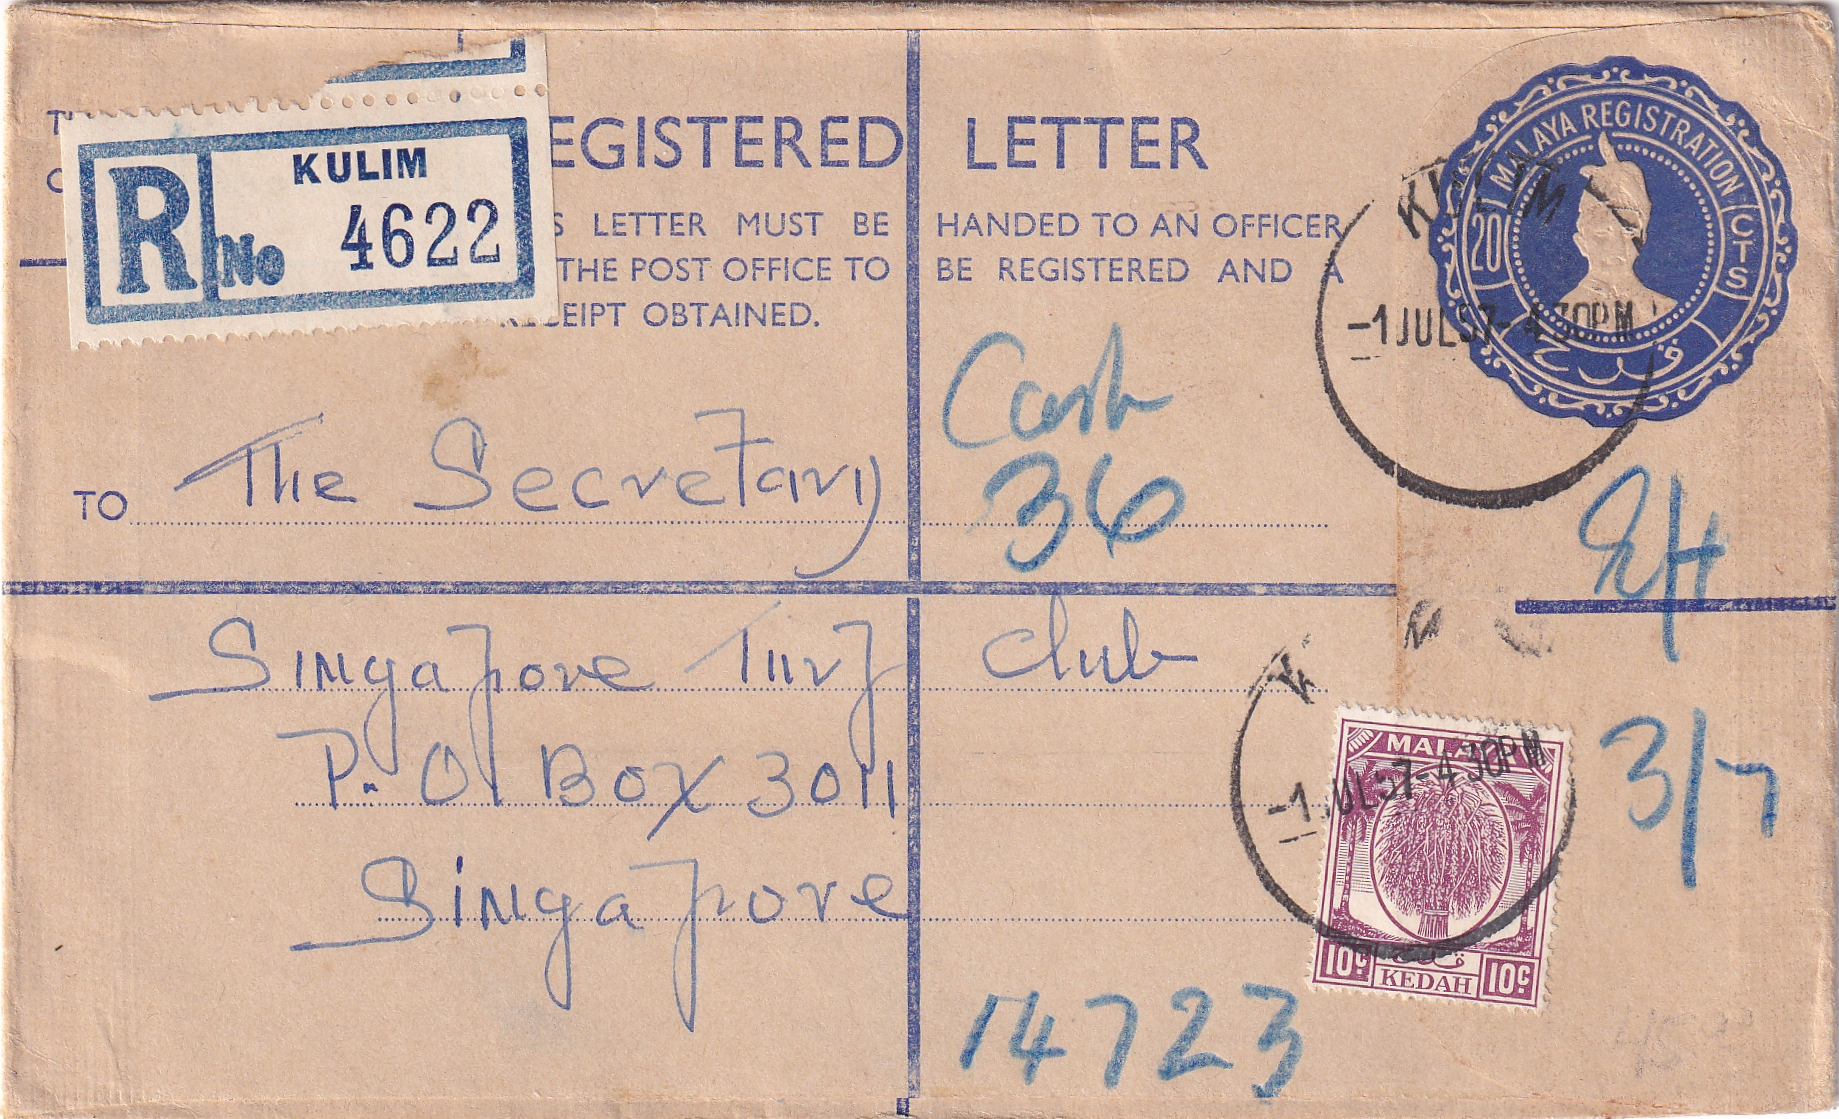 REGISTERED LETTER
LETTER MUST BE HANDED TO AN OFFICER
THE POST OFFICE TO BE REGISTERED AND A
RECEIPT OBTAINED.
R
KULIM
No 4622
MALAYA REGISTRATION
20 CTS
قدح
KULIM
-1 JUL 57-4 30PM
Cash
36
TO The Secretary
Singapore Turf Club
P.O Box 3011
Singapore
3/7
-1 JUL 57-4 30PM
MALAYA
10c KEDAH 10c
14723